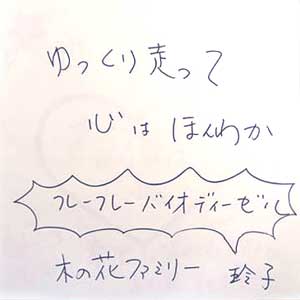 ゆっくり走って
心は ほんわか
フレーフレーバイオディーゼル
木の花ファミリー 玲子